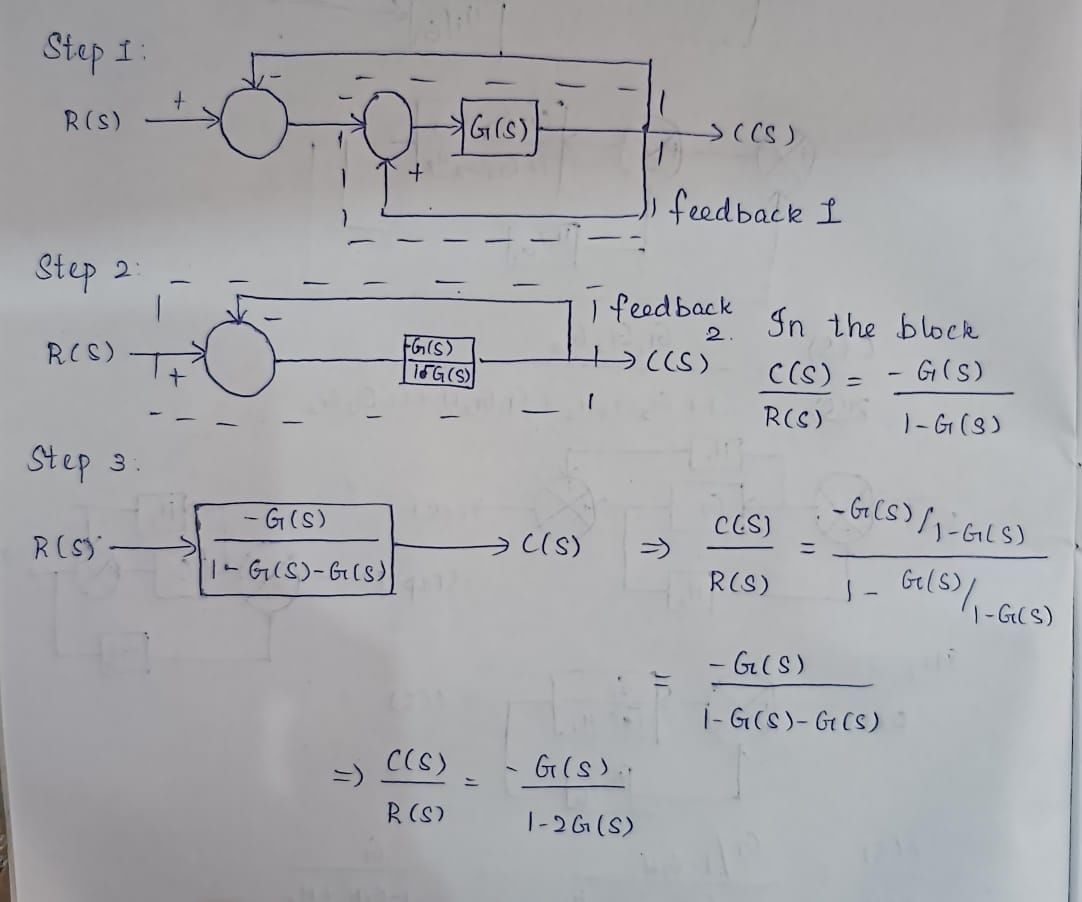 Step 1:
-
R(S) + - G(S) C(S)
+
feedback 1
Step 2:
feedback 2.
-
R(S) + -G(S) / 1-G(S) C(S)
In the block
C(S)/R(S) = -G(S)/1-G(S)
Step 3:
R(S) -G(S) / 1-G(S)-G(S) C(S)
⇒ C(S)/R(S) = -G(S)/1-G(S) / 1 - G(S)/1-G(S)
= -G(S) / 1-G(S)-G(S)
⇒ C(S)/R(S) = -G(S) / 1-2G(S)